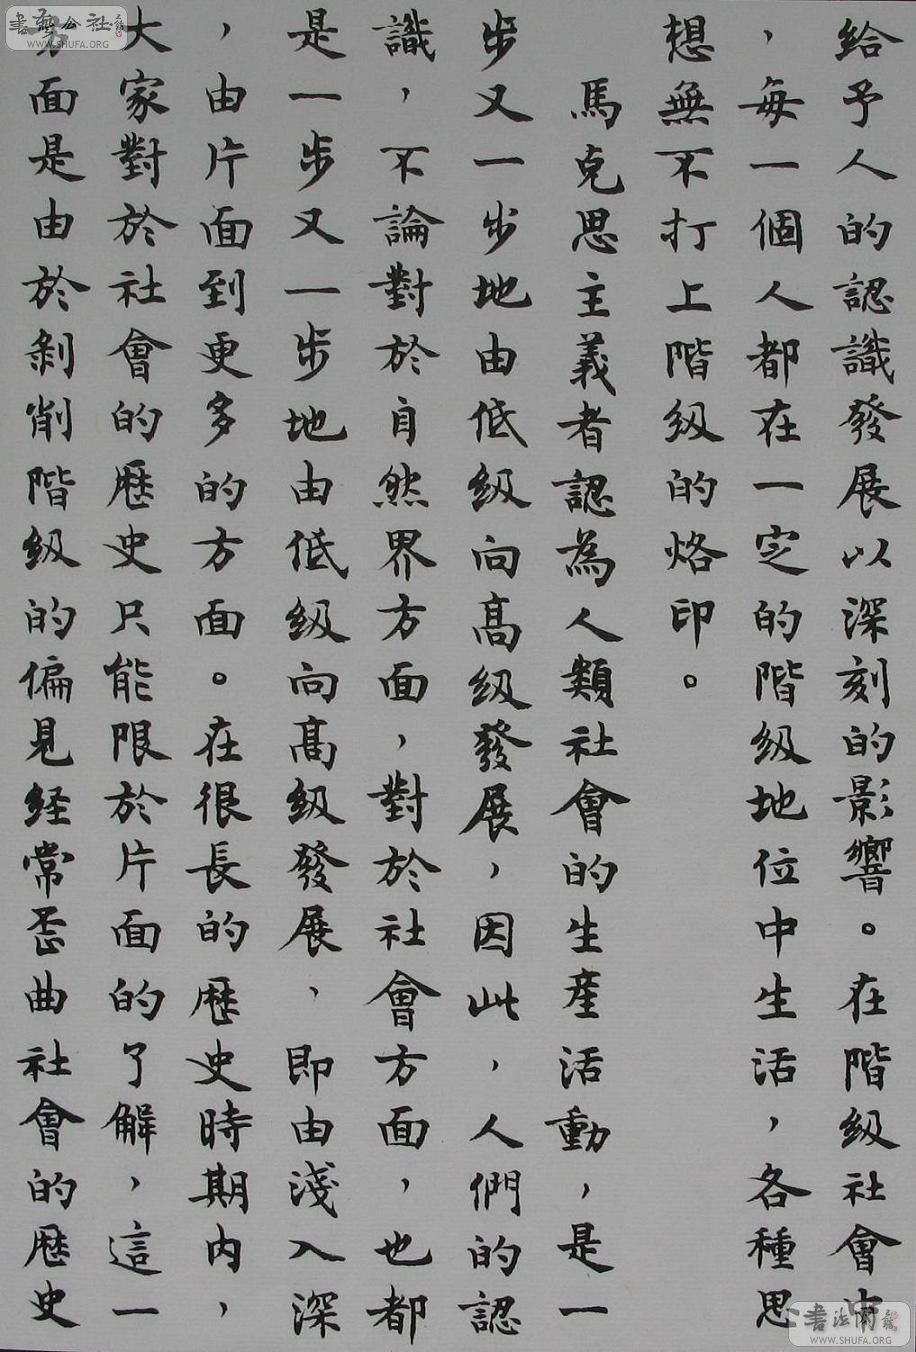 給予人的認識發展以深刻的影響。在階級社會中
，每一個人都在一定的階級地位中生活，各種思
想無不打上階級的烙印。
馬克思主義者認為人類社會的生產活動，是一
步又一步地由低級向高級發展，因此，人們的認
識，不論對於自然界方面，對於社會方面，也都
是一步又一步地由低級向高級發展，即由淺入深
，由片面到更多的方面。在很長的歷史時期內，
大家對於社會的歷史只能限於片面的了解，這一
方面是由於剝削階級的偏見経常歪曲社會的歷史
書藝公社
WWW.SHUFA.ORG
書法
WWW.SHUFA.ORG